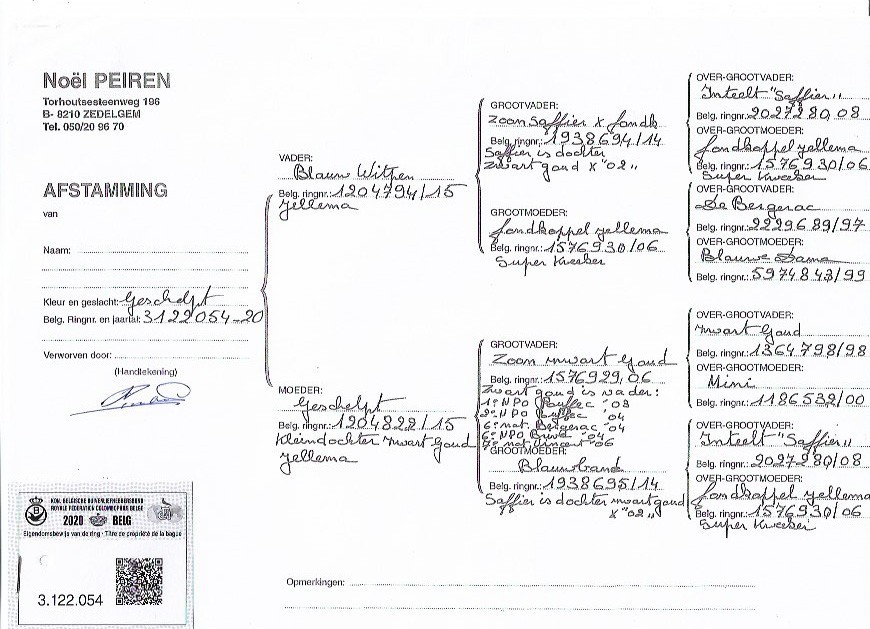 Noël PEIREN
Torhoutsesteenweg 196
B- 8210 ZEDELGEM
Tel. 050/20 96 70
AFSTAMMING
van
Naam:
Kleur en geslacht: Geschelpt
Belg. Ringnr. en jaartal: 3122054-20
Verworven door:
(Handtekening)
VADER:
Blauw Witpen
Belg. ringnr.: 1204794/15
Jellema
MOEDER:
Geschelpt
Belg. ringnr.: 1204822/15
Kleindochter zwart Goud
Jellema
GROOTVADER:
Zoon Saffier x fondk
Belg. ringnr.: 1938694/14
Saffier is dochter
Zwart goud x "02"
GROOTMOEDER:
fondkoppel Jellema
Belg. ringnr.: 1576930/06
Super Kweker
GROOTVADER:
Zoon zwart Goud
Belg. ringnr.: 1576929,06
Zwart goud is vader:
1e NPO Ruffec '03
2e NPO Ruffec '04
6e nat. Bergerac '04
6e NPO Brive '04
7e nat. Vincent '06
GROOTMOEDER:
Blauwband
Belg. ringnr.: 1938695/14
Saffier is dochter zwart goud
x "02"
OVER-GROOTVADER:
Inteelt "Saffier"
Belg. ringnr.: 2027280,08
OVER-GROOTMOEDER:
fondkoppel Jellema
Belg. ringnr.: 1576930/06
Super Kweeker
OVER-GROOTVADER:
De Bergerac
Belg. ringnr.: 2229689/97
OVER-GROOTMOEDER:
Blauwe Dama
Belg. ringnr.: 5974843/99
OVER-GROOTVADER:
zwart Goud
Belg. ringnr.: 1364798/98
OVER-GROOTMOEDER:
Mini
Belg. ringnr.: 1186532/00
OVER-GROOTVADER:
Inteelt "Saffier"
Belg. ringnr.: 2027280/08
OVER-GROOTMOEDER:
fondkoppel Jellema
Belg. ringnr.: 1576930/06
Super Kweker
Opmerkingen:
KON. BELGISCHE DUIVENLIEFHEBBERSBOND
ROYALE FEDERATION COLOMBOPHILE BELGE
2020 BELG
Eigendomsbewijs van de ring - Titre de propriété de la bague
3.122.054